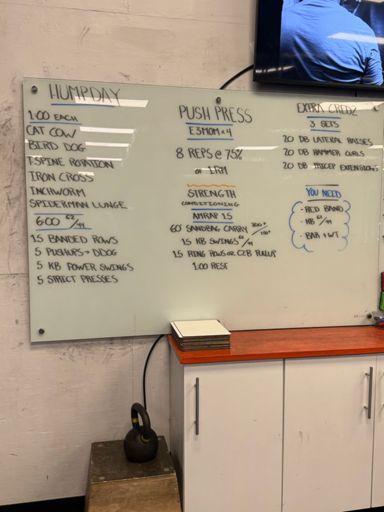 HUMPDAY
1:00 EACH
CAT COW
BIRD DOG
TSPINE ROTATION
IRON CROSS
INCHWORM
SPIDERMAN LUNGE
6:00
15 BANDED ROWS
5 PUSHUPS → DDOG
5 KB POWER SWINGS
5 STRICT PRESSES
PUSH PRESS
E3MOM × 4
8 REPS @ 75%
OF 1RM
STRENGTH
CONDITIONING
AMRAP 15
60' SANDBAG CARRY
15 KB SWINGS
15 RING ROWS OR C2B PULLUPS
1:00 REST
EXTRA CREDZ
3 SETS
20 DB LATERAL RAISES
20 DB HAMMER CURLS
20 DB TRICEP EXTENSIONS
YOU NEED
- RED BAND
- KB
- BAR + WT